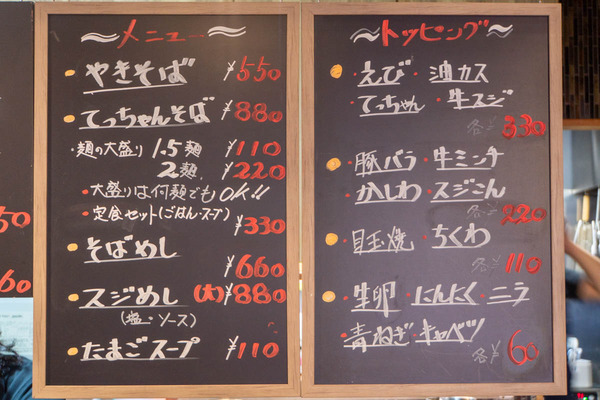 メニュー
やきそば ¥550
てっちゃんそば ¥880
・麺の大盛り 1.5麺 ¥110
2麺 ¥220
・大盛りは何麺でもOK!!
・定食セット(ごはん・スープ) ¥330
そばめし ¥660
スジめし (大)¥880
(塩・ソース)
たまごスープ ¥110
トッピング
・えび ・油カス
・てっちゃん ・牛スジ
各¥330
・豚バラ ・牛ミンチ
・かしわ ・スジこん
各¥220
・目玉焼 ・ちくわ
各¥110
・生卵 ・にんにく ・ニラ
・青ねぎ ・キャベツ
各¥60
50
60